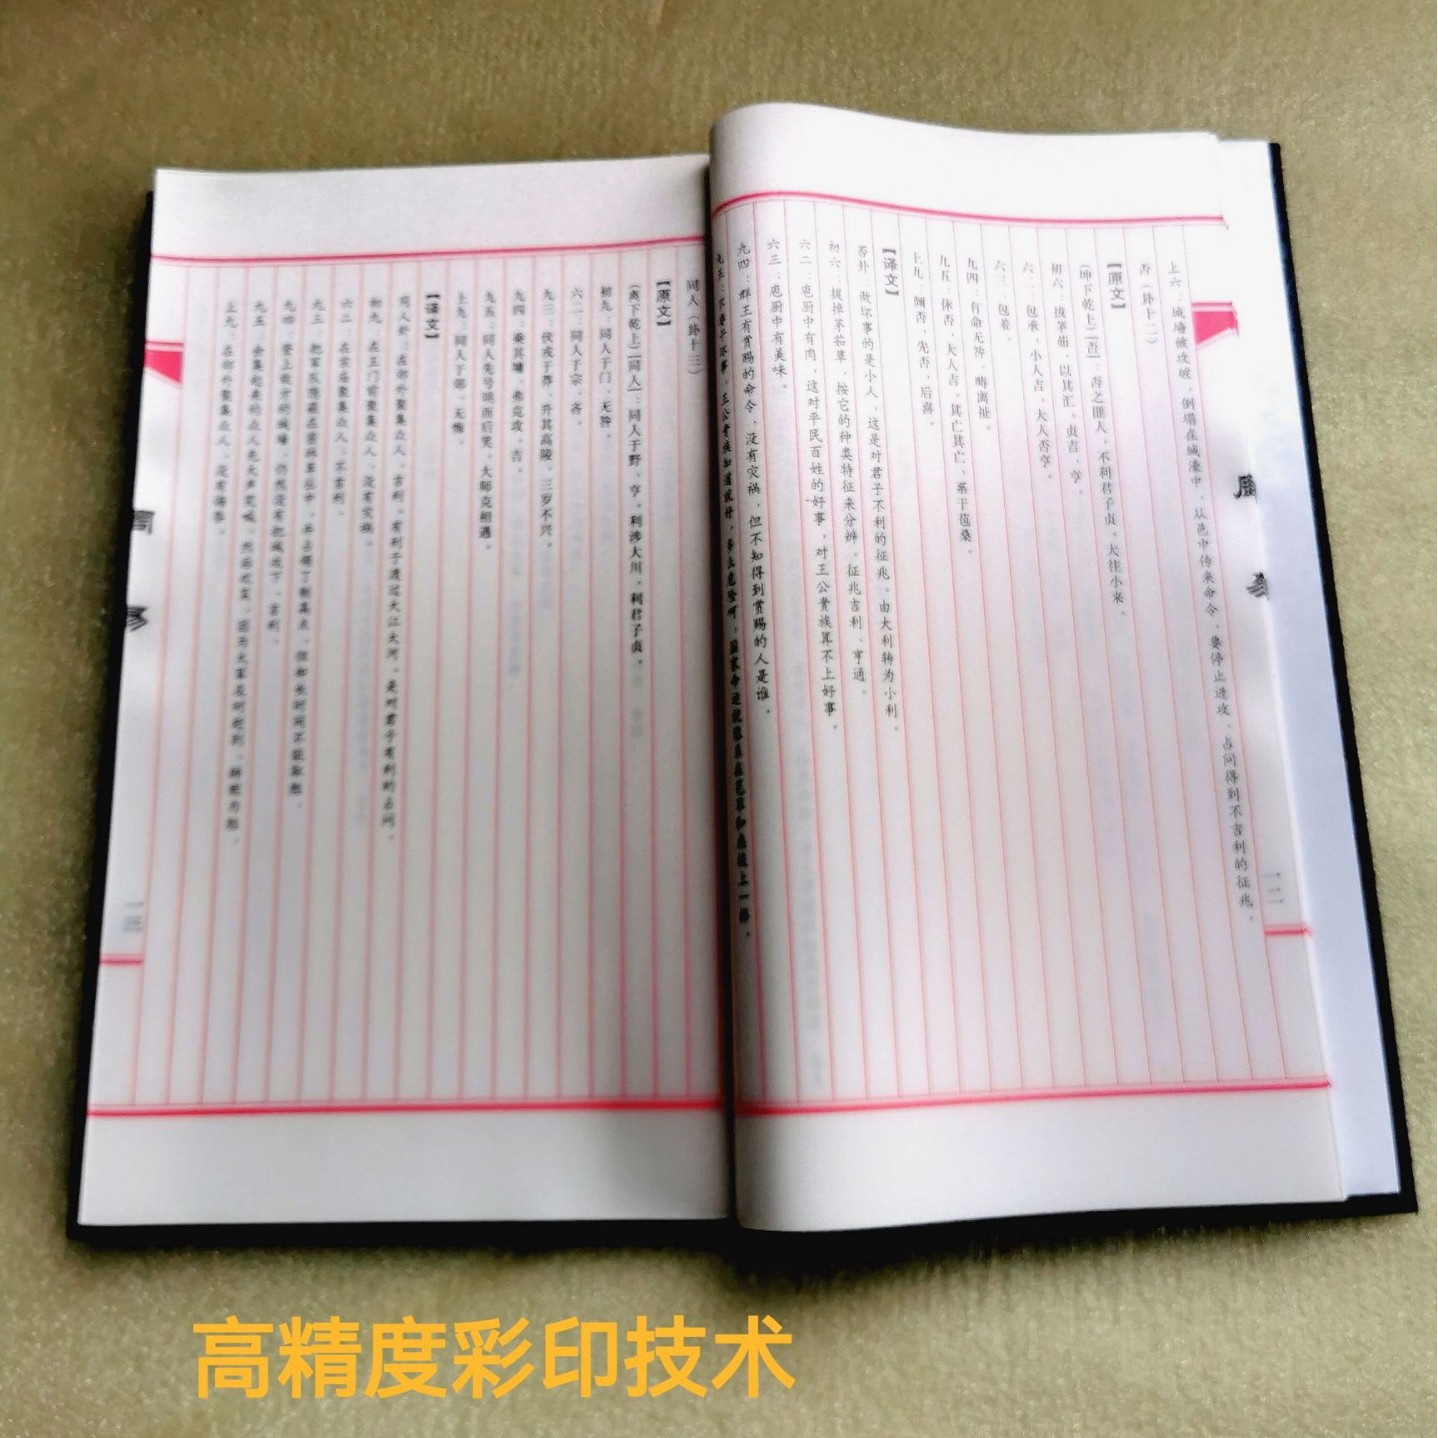 上六：城墙被攻破，倒塌在城濠中，从邑中传来命令，要停止进攻。占问得到不吉利的征兆。
否（卦十二）
【原文】
（坤下乾上）[否]：否之匪人，不利君子贞，大往小来。
初六：拔茅茹，以其汇。贞吉，亨。
六二：包承，小人吉，大人否亨。
六三：包羞。
九四：有命无咎，畴离祉。
九五：休否，大人吉。其亡其亡，系于苞桑。
上九：倾否，先否，后喜。
【译文】
否卦：做坏事的是小人，这是对君子不利的征兆，由大利转为小利。
初六：拔掉茅茹草，按它的种类特征来分辨。征兆吉利、亨通。
六二：庖厨中有肉，这对平民百姓的好事，对王公贵族算不上好事。
六三：庖厨中有美味。
九四：群王有赏赐的命令，没有灾祸，但不知得到赏赐的人是谁。
九五：不要干坏事，王公贵族知道就好，多么危险呵，国家命运就像系在苞草和桑枝上一样。
周易
一二
同人（卦十三）
【原文】
（离下乾上）[同人]：同人于野，亨。利涉大川，利君子贞。
初九：同人于门，无咎。
六二：同人于宗，吝。
九三：伏戎于莽，升其高陵，三岁不兴。
九四：乘其墉，弗克攻，吉。
九五：同人先号咷而后笑，大师克相遇。
上九：同人于郊，无悔。
【译文】
同人卦：在郊外聚集众人，吉利。有利于渡过大江大河，是对君子有利的占问。
初九：在王门前聚集众人，没有灾祸。
六二：在宗庙聚集众人，不吉利。
九三：把军队隐蔽在密林草丛中，并占领了制高点，但却长时间不能取胜。
九四：登上敌方的城墙，仍然没有把城攻下，吉利。
九五：会集起来的众人先大声哭喊，然后欢笑，因为大军及时赶到，转败为胜。
上九：在郊外聚集众人，没有悔咎。
周易
一三
高精度彩印技术